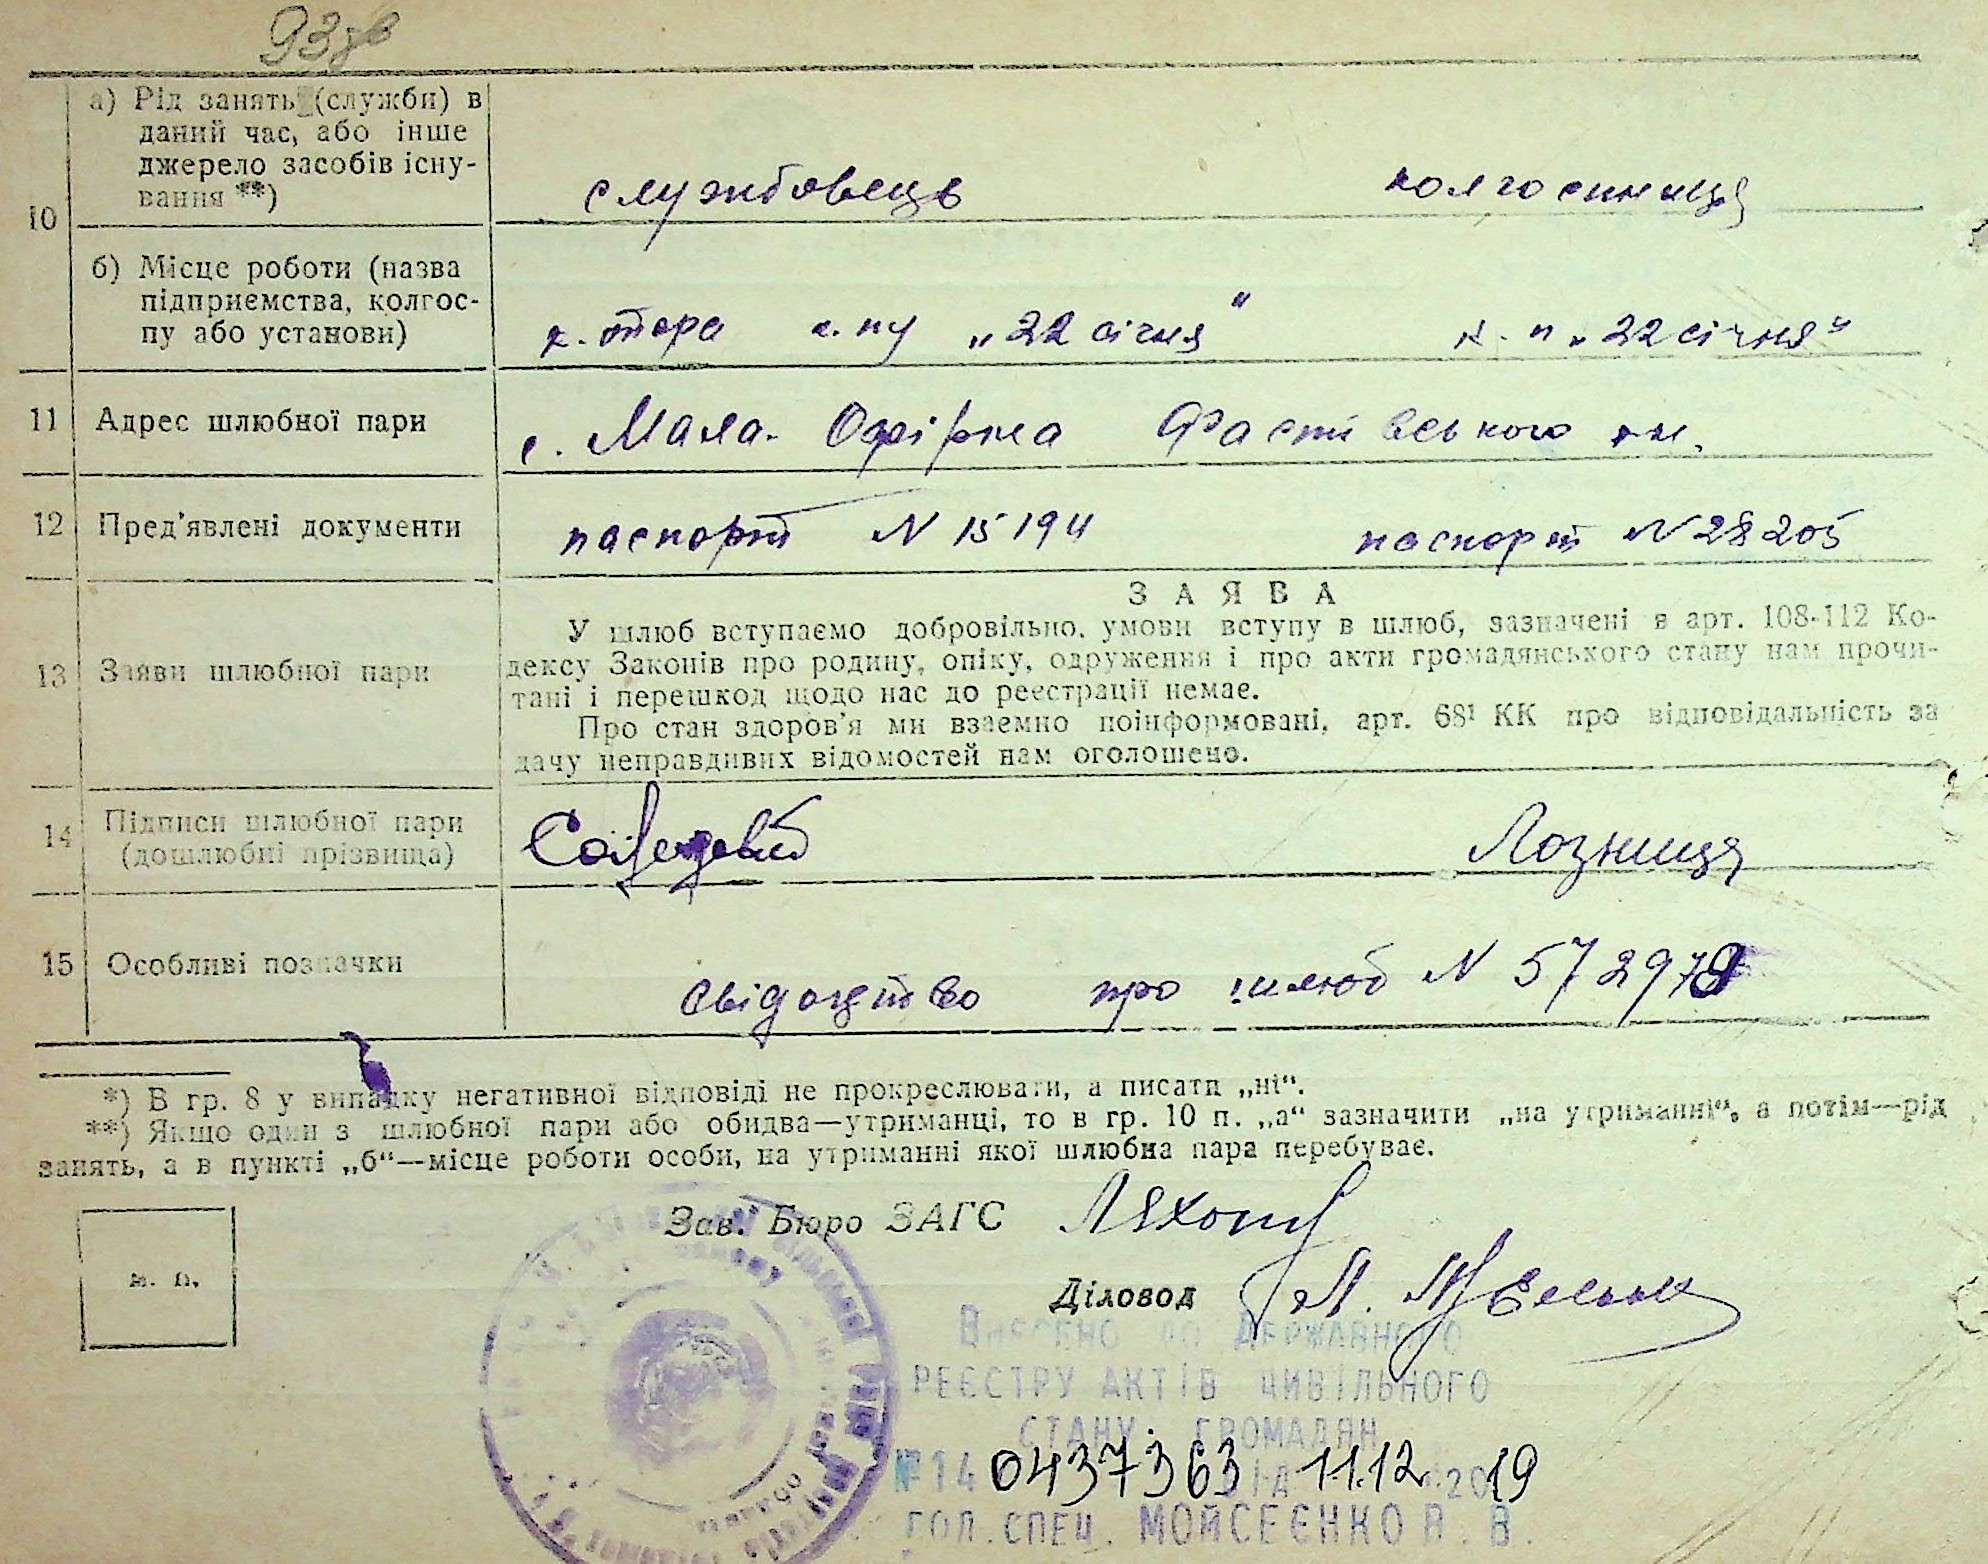 93зв
а) Рід занять (служби) в
даний час, або інше
джерело засобів існу-
вання **)
службовець колгоспниця
10
б) Місце роботи (назва
підприємства, колгос-
пу або установи)
„22 січня" к. п „22 січня"
11 Адрес шлюбної пари с. Мала Офірна Фастівського рн.
12 Пред'явлені документи паспорт N 15194 паспорт N 28205
З А Я В А
У шлюб вступаємо добровільно, умови вступу в шлюб, зазначені в арт. 108-112 Ко-
13 Заяви шлюбної пари дексу Законів про родину, опіку, одруження і про акти громадянського стану нам прочи-
тані і перешкод щодо нас до реєстрації немає.
Про стан здоров'я ми взаємно поінформовані, арт. 68¹ КК про відповідальність за
дачу неправдивих відомостей нам оголошено.
14 Підписи шлюбної пари
(дошлюбні прізвища) Лозниця
15 Особливі позначки
свідоцтво про шлюб N
*) В гр. 8 у випадку негативної відповіді не прокреслювати, а писати „ні".
**) Якщо один з шлюбної пари або обидва—утриманці, то в гр. 10 п. „а" зазначити „на утриманні", а потім—рід
занять, а в пункті „б"—місце роботи особи, на утриманні якої шлюбна пара перебуває.
Зав. Бюро ЗАГС
м. п.
Діловод
Внесено до Державного
реєстру актів цивільного
стану громадян
№ 14 0437363 від 11.12.2019
гол. спец. Мойсеєнко В. В.